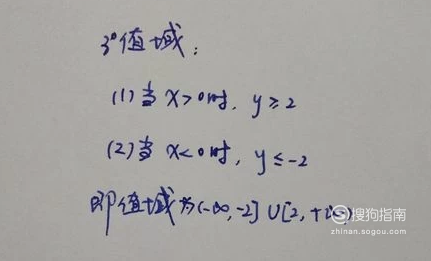 3°值域：
(1)当 x>0时, y≥2
(2)当 x<0时, y≤-2
即值域为(-∞,-2]∪[2,+∞)
搜狗指南
zhinan.sogou.com